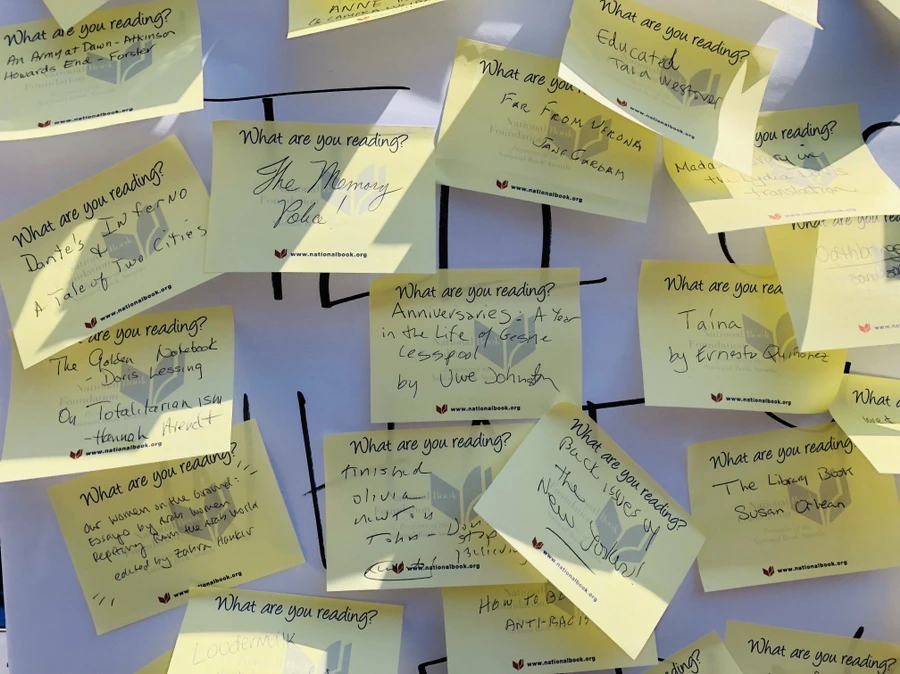 What are you reading?
An Army at Dawn - Atkinson
Howards End - Forster
www.nationalbook.org
ANNE
What are you reading?
Educated
Tara Westover
What are you
FAR FROM VERONA
JANE GARDAM
www.nationalbook.org
you reading?
Mada
in
translation
www.nationalbook.org
What are you reading?
The Memory
Police!
www.nationalbook.org
What are you reading?
Dante's INFERNO
&
A Tale of Two Cities
www.nationalbook.org
What are you rea
Oathbring
What are you reading?
Anniversaries: A Year
in the Life of Gesine
Cresspool
by Uwe Johnson
www.nationalbook.org
What are you rea
Taína
by Ernesto Quiñonez
www.nationalbook.org
are you reading?
The Golden Notebook
- Doris Lessing
On Totalitarianism
- Hannah Arendt
www.nationalbook.org
What a
What are you reading?
Our women on the Ground:
Essays by Arab women
Reporting from the Arab World
edited by Zahra Hankir
www.nationalbook.org
What are you reading?
finished
olivia
newton
John - Don
stop
Believin
www.nationalbook.org
What are you reading?
Back issues of
the
New Yorker!
What are you reading?
The Library Book
Susan Orlean
www.nationalbook.org
What are you reading?
Loudermilk
HOW TO BE
ANTI-RACIS
www.nationalbook.org
reading?
What are you reading?